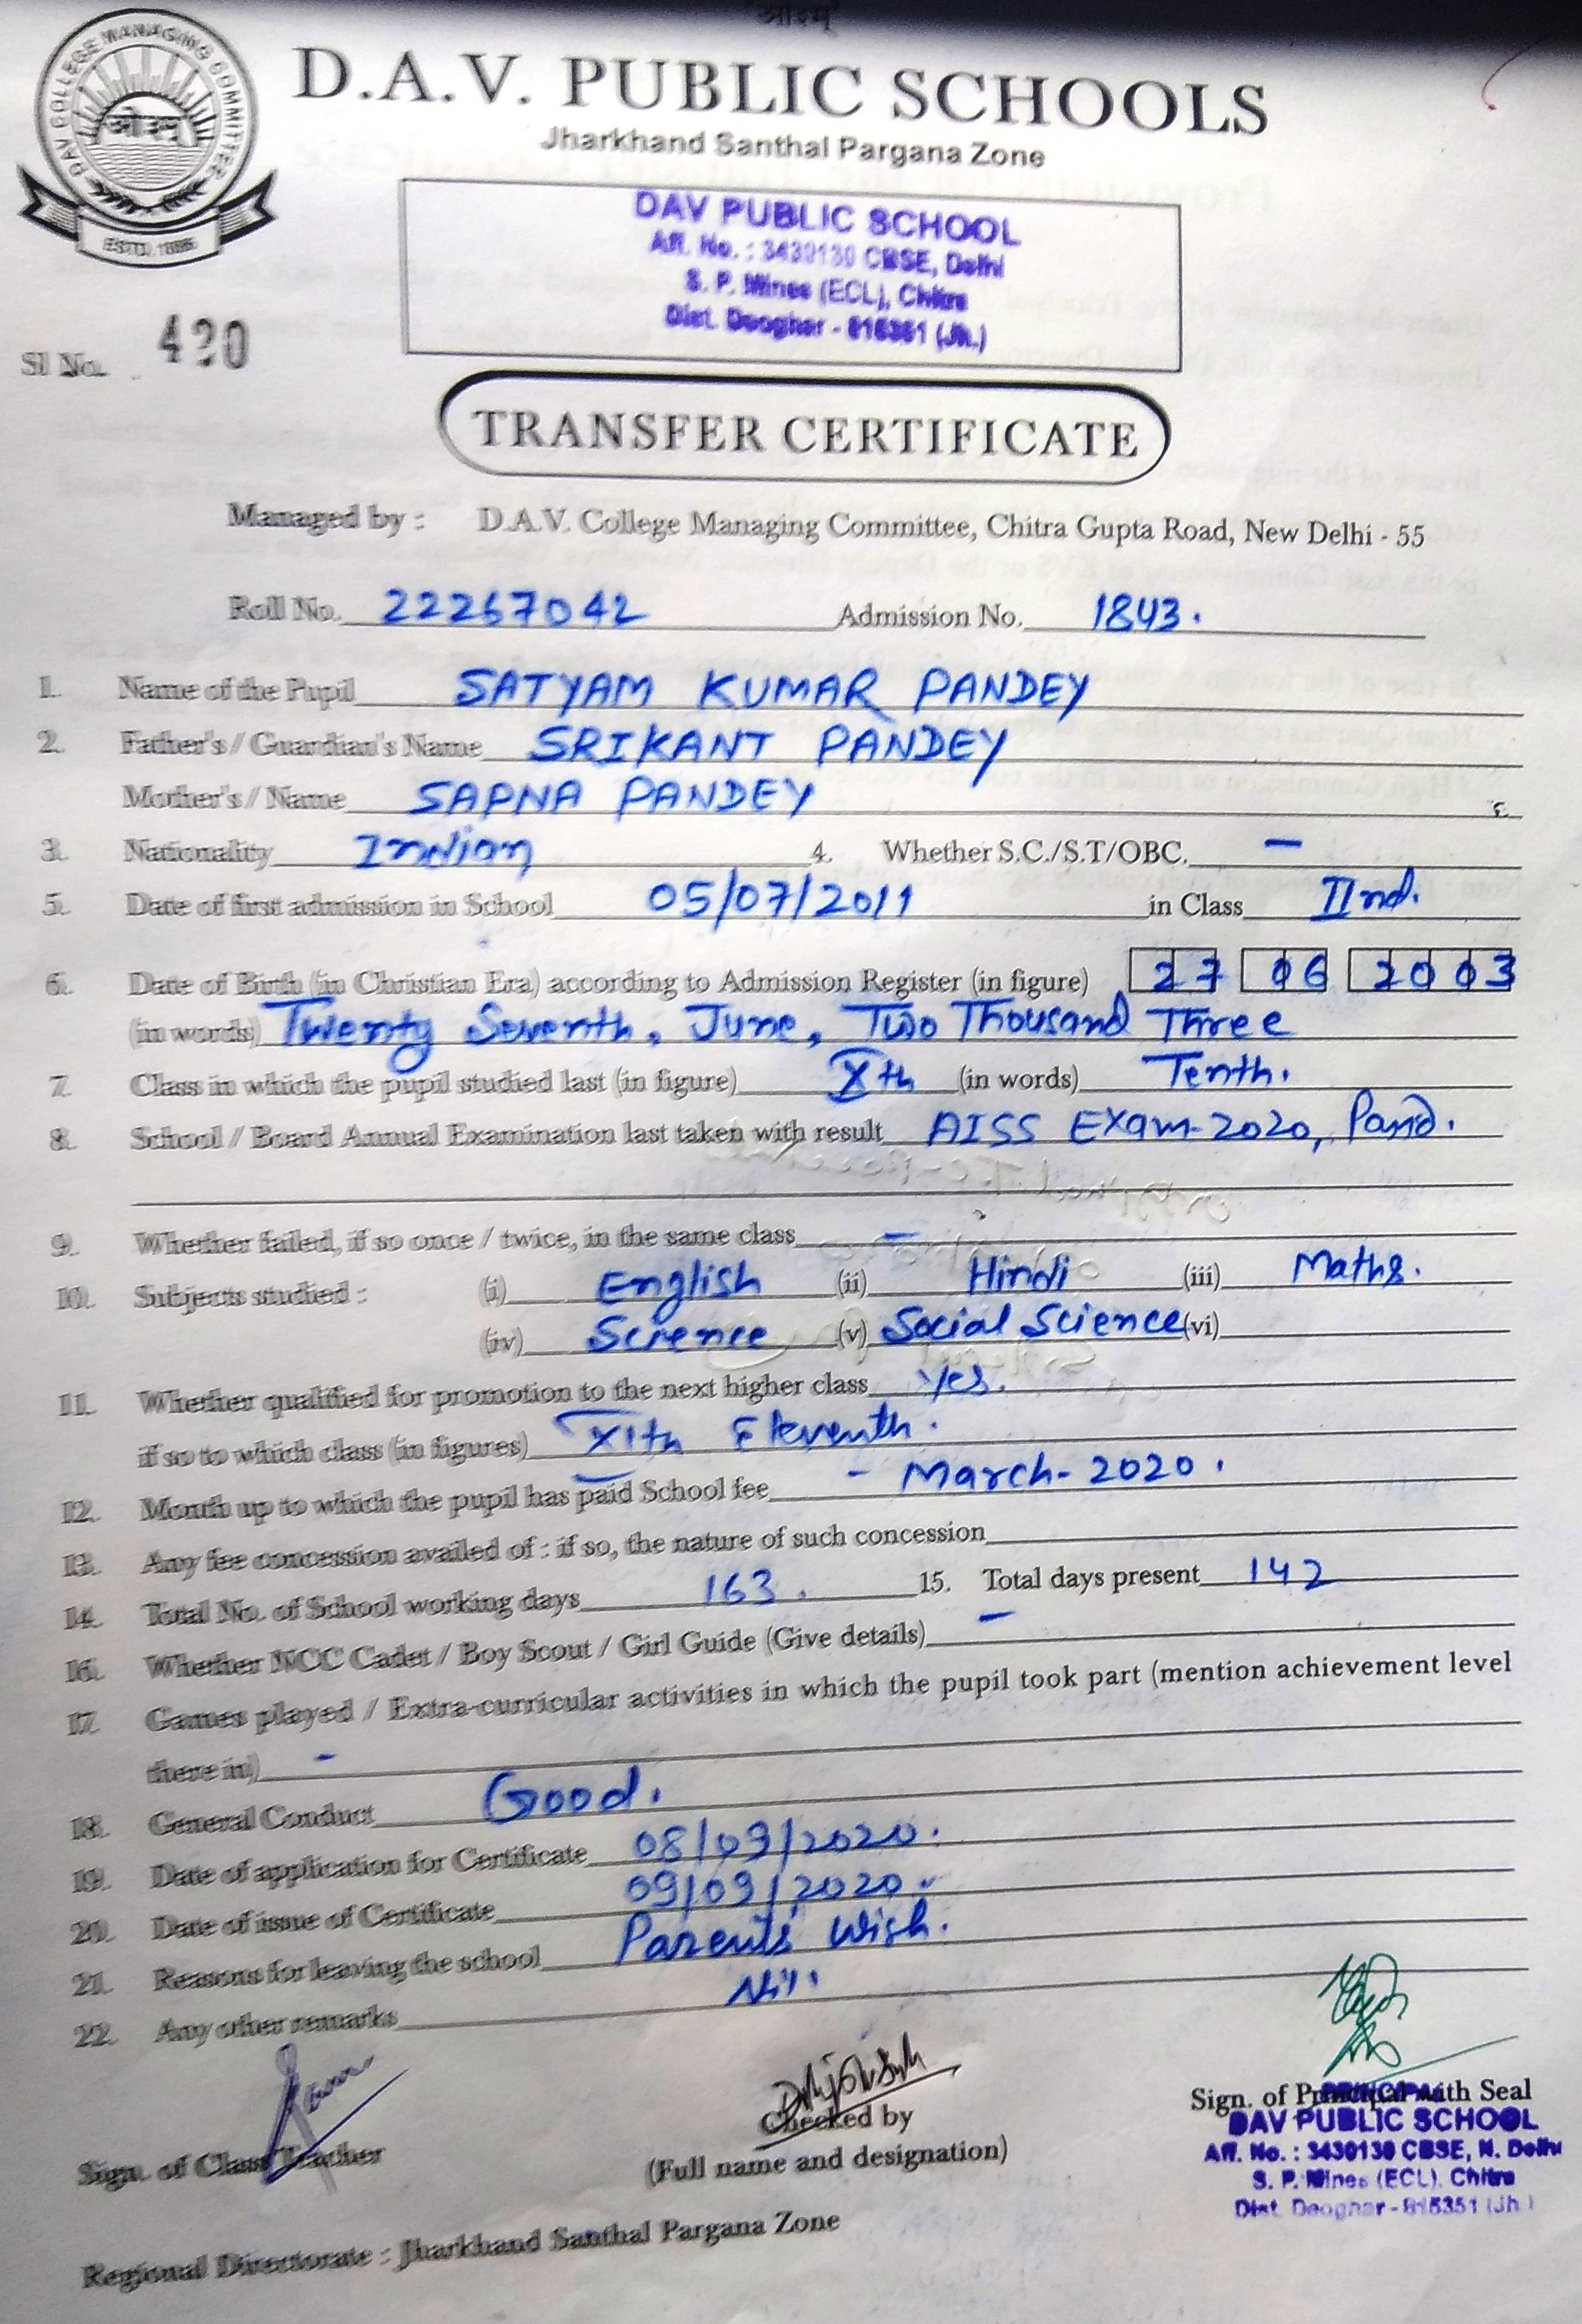 "ओ३म्"
DAV COLLEGE MANAGING COMMITTEE
ओ३म्
ESTD. 1886
D.A.V. PUBLIC SCHOOLS
Jharkhand Santhal Pargana Zone
DAV PUBLIC SCHOOL
Aff. No. : 3430130 CBSE, Delhi
S. P. Mines (ECL), Chitra
Dist. Deoghar - 815351 (Jh.)
Sl No. 420
TRANSFER CERTIFICATE
Managed by : D.A.V. College Managing Committee, Chitra Gupta Road, New Delhi - 55
Roll No. 22267042 Admission No. 1843.
1. Name of the Pupil SATYAM KUMAR PANDEY
2. Father's / Guardian's Name SRIKANT PANDEY
Mother's / Name SAPNA PANDEY
3. Nationality Indian 4. Whether S.C./S.T/OBC. —
5. Date of first admission in School 05/07/2011 in Class IInd.
6. Date of Birth (in Christian Era) according to Admission Register (in figure) 27 06 2003
(in words) Twenty Seventh, June, Two Thousand Three
7. Class in which the pupil studied last (in figure) Xth (in words) Tenth.
8. School / Board Annual Examination last taken with result AISS Exam-2020,
9. Whether failed, if so once / twice, in the same class —
10. Subjects studied : (i) English (ii) Hindi (iii) Maths.
(iv) Science (v) Social Science (vi)
11. Whether qualified for promotion to the next higher class Yes.
if so to which class (in figures) XIth Eleventh.
12. Month up to which the pupil has paid School fee - March-2020.
13. Any fee concession availed of : if so, the nature of such concession
14. Total No. of School working days 163. 15. Total days present 142
16. Whether NCC Cadet / Boy Scout / Girl Guide (Give details) —
17. Games played / Extra-curricular activities in which the pupil took part (mention achievement level
there in) -
18. General Conduct Good.
19. Date of application for Certificate 08/09/2020.
20. Date of issue of Certificate 09/09/2020.
21. Reasons for leaving the school Parents' Wish.
22. Any other remarks Nil.
Sign. of Class Teacher
Checked by
(Full name and designation)
Sign. of Principal with Seal
PRINCIPAL
DAV PUBLIC SCHOOL
Aff. No. : 3430130 CBSE, N. Delhi
S. P. Mines (ECL), Chitra
Dist. Deoghar - 815351 (Jh.)
Regional Directorate : Jharkhand Santhal Pargana Zone